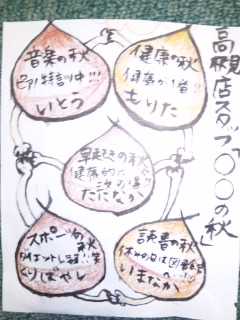 高槻店スタッフ
「○○の秋」
健康の秋
健康が1番!!
もりた
音楽の秋
ピアノ特訓中!!!
いとう
早起きの秋
健康的に
三文の得!!
たになか
読書の秋
休みの日は図書館
へ…!
いまなか
スポーツの
秋
ダイエットし隊!!笑
くりばやし